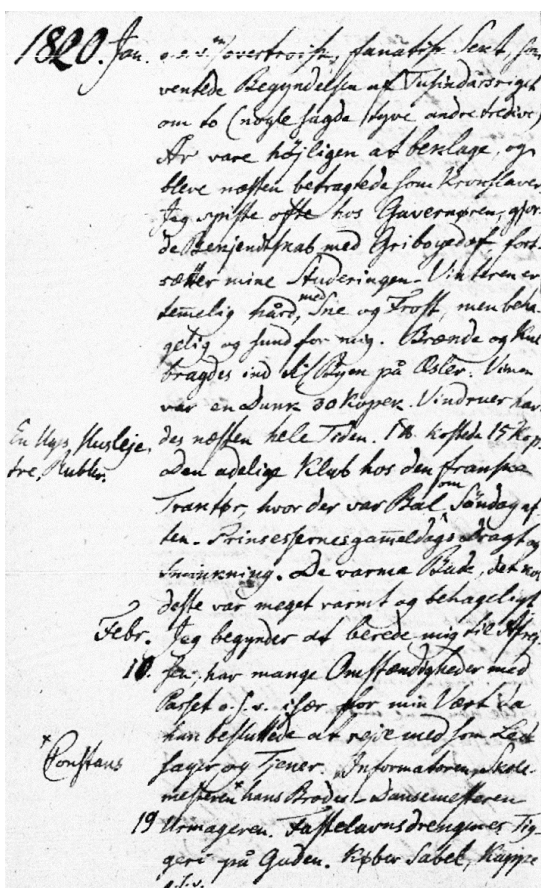 1820. Jan. o.s.v. overtroisk, fanatisk Sect, som
ventede Begyndelsen af Tusindårsriget
om to (nogle sagde tyve andre tredive)
År vare højligen at beklage, og
bleve næsten betragtede som Kronslaver.
Jeg spiste ofte hos Guvernøren, gjor-
de Bekjendtskab med Gribojedof, fort-
sætter mine Studeringer. Vinteren er
temmelig hård, med Sne og Frost, men beha-
gelig og sund for mig. Brænde og Kul
bragdes ind til Byen på Æsler. Vinen
var en Dunk 30 Kopek. Vindruer hav-
En Uges Husleje des næsten hele Tiden. 1 ℔. kostede 15 Kop.
tre, Rubler. Den adelige Klub hos den franske
Traktør, hvor der var Bal som Söndag af-
ten. Prinsessernes gammeldags Dragt og
Sminkning. De varme Bade, det
deste var meget varmt og behageligt
Febr. Jeg begynder at berede mig til Afrej-
10. sen, har mange Omstændigheder med
Passet o.s.v. især for min Vært da
han besluttede at rejse med som Led-
*Constans sager og Tjener. Informatoren, Skole-
mesteren* hans Broder – Dansemesteren
19 Urmageren. Fastelavnsdrengenes Tig-
geri på Gaden. Køber Sabel, Kappe